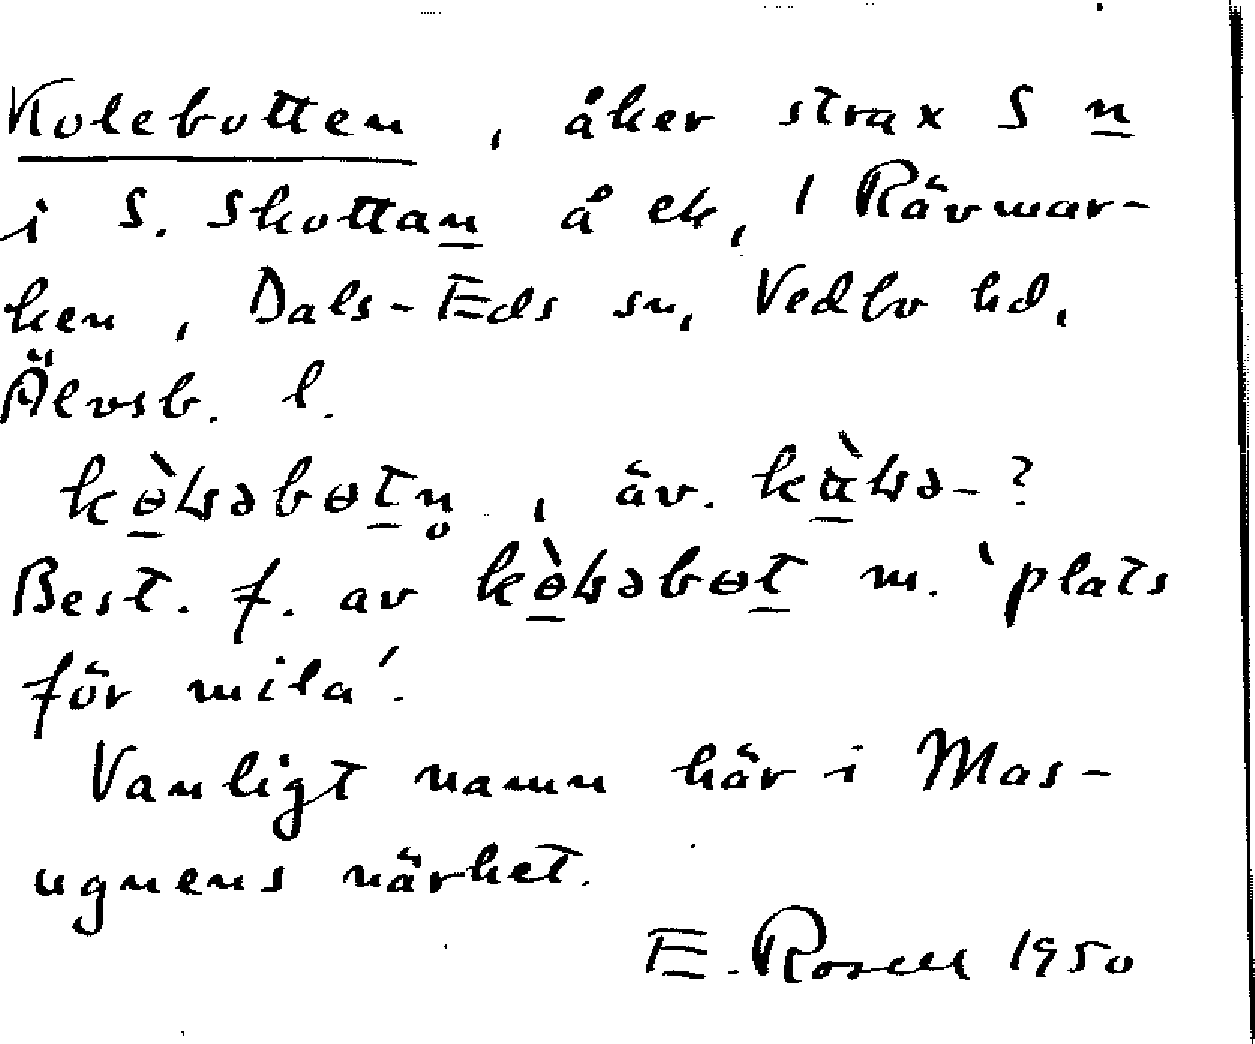 Kolebotten, åker strax S n
i S. Skottan å ek, 1 Rävmar-
ken, Dals-Eds sn, Vedbo hd,
Älvsb. l.
, äv.
Best. f. av m. 'plats
för mila'.
Vanligt namn här i Mas-
ugnens närhet.
E. Rosell 1950